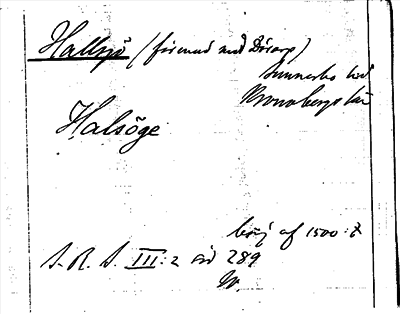 Hallsjö (förenad med Dörarp)
Sunnerbo hd
Kronobergs län
Halsöge
börj af 1500 t
S. R. S. III: 2 sid 289
W.